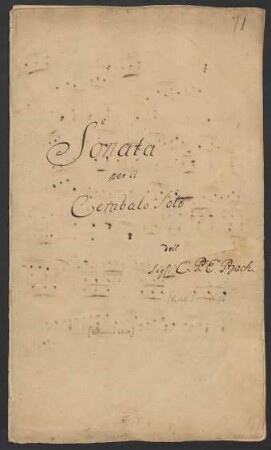 71
Sonata
per il
Cembalo Solo
dell
Sigr. C. P. E. Bach.